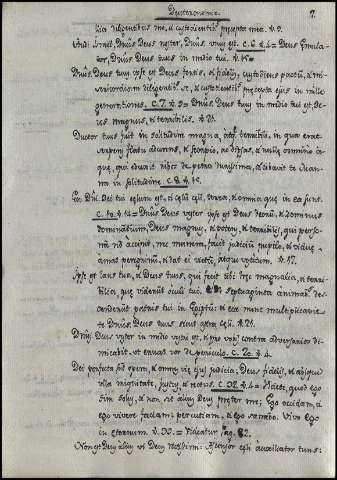 Deuteronomio. 7.
diligentibus me, & custodientibus præcepta mea. v. 9.
Audi Israel, Dnus Deus noster, Dnus unus est. c. 6. v. 4 = Deus
Dnus Deus tuus in medio tui. v. 15 =
Dnus Deus tuus ipse est Deus fortis, & fidelis, custodiens pactum, & mi-
sericordiam diligentibus se, & custodientibus præcepta ejus in mille
generationes. c. 7. v. 9 = Dnus Deus tuus in medio tui est, De-
us magnus, & terribilis. v. 21.
Ductor tuus fuit in solitudine magna, atq; terribili, in qua erat
serpens flatu adurens, & scorpio, ac dipsas, & nullæ omnino a-
quæ, qui eduxit rivos de petra durissima, & cibavit te Man-
na in solitudine. c. 8. v. 15.
En Dni Dei tui cælum est, & cælum cæli, terra, & omnia quæ in ea sunt.
c. 10. v. 14 = Dnus Deus vester ipse est Deus Deorum, & Dominus
dominantium, Deus magnus, & potens, & terribilis, qui perso-
nam non accipit, nec munera, facit judicium pupillo, & viduæ,
amat peregrinum, & dat ei victum, atque vestitum. v. 17.
Ipse est laus tua, & Deus tuus, qui fecit tibi hæc magnalia, & terri-
bilia, quæ viderunt oculi tui. septuaginta animabus des-
cenderunt patres tui in Egiptum: & ecce nunc multiplicavit
te Dnus Deus tuus sicut astra cæli. v. 21.
Dnus Deus vester in medio vestri est, & pro vobis contra adversarios di-
micabit, ut eruat vos de periculo. c. 20. v. 4.
Dei perfecta sunt opera, & omnes viæ ejus judicia; Deus fidelis, & absque
ulla iniquitate, justus, & rectus. c. 32. v. 4 = Videte, quod Ego
sim solus, & non sit alius Deus præter me; Ego occidam, &
ego vivere faciam; percutiam, & Ego sanabo. Vivo Ego
in æternum. v. 39 =
Non est Deus alius ut Deus Rectissimi: Ascensor cæli auxiliator tuus: